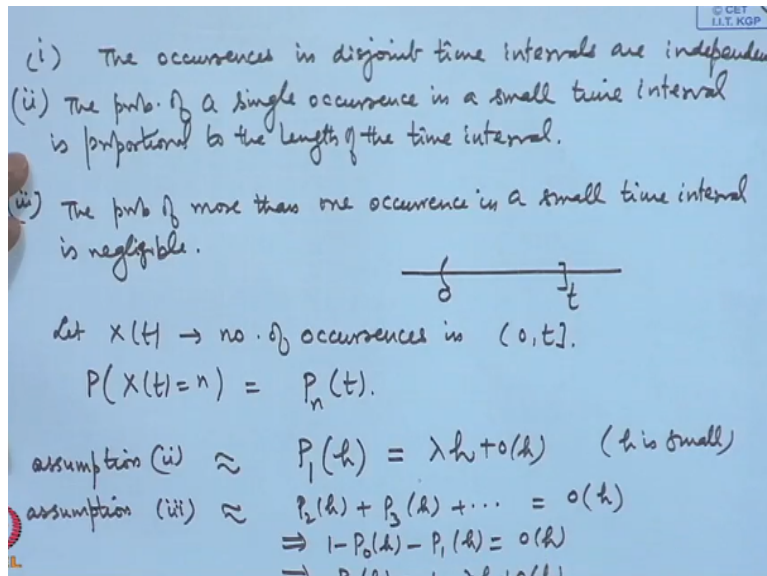 © CET
I.I.T. KGP
(i) The occurrences in disjoint time intervals are independen
(ii) The prob. of a single occurrence in a small time interval
is proportional to the length of the time interval.
(iii) The prob of more than one occurrence in a small time interval
is negligible.
0 t
Let X(t) → no. of occurrences in (0,t].
P(X(t)=n) = Pₙ(t).
assumption (ii) ≈ P₁(h) = λh+o(h) (h is small)
assumption (iii) ≈ P₂(h) + P₃(h) + ··· = o(h)
⇒ 1-P₀(h)-P₁(h) = o(h)